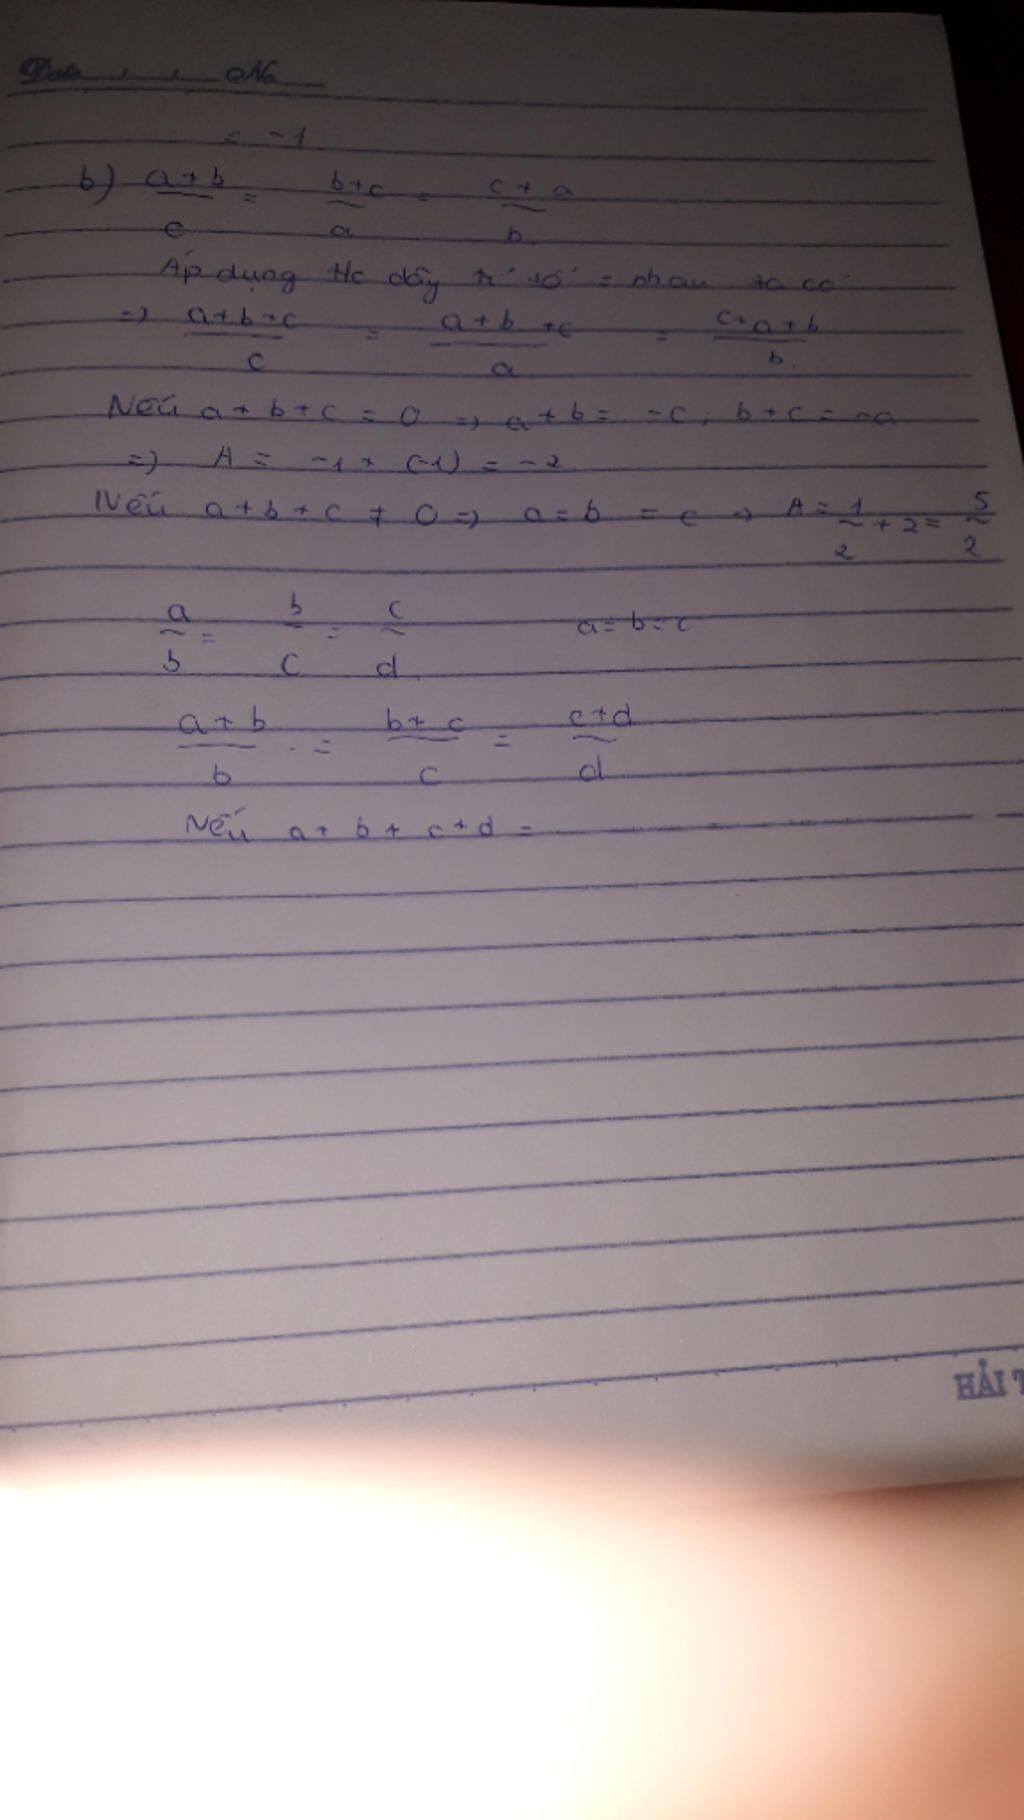 Date , , No
= -1
b) a+b/c = b+c/a = c+a/b
Áp dụng t/c dãy tỉ số = nhau ta có
=> a+b+c/c = a+b+c/a = c+a+b/b
Nếu a+b+c = 0 => a+b = -c, b+c = -a
=> A = -1 + (-1) = -2
Nếu a+b+c ≠ 0 => a=b=c => A = 1/2 + 2 = 5/2
a/b = b/c = c/d a=b=c
a+b/b = b+c/c = c+d/d
Nếu a+b+c+d =
HẢI